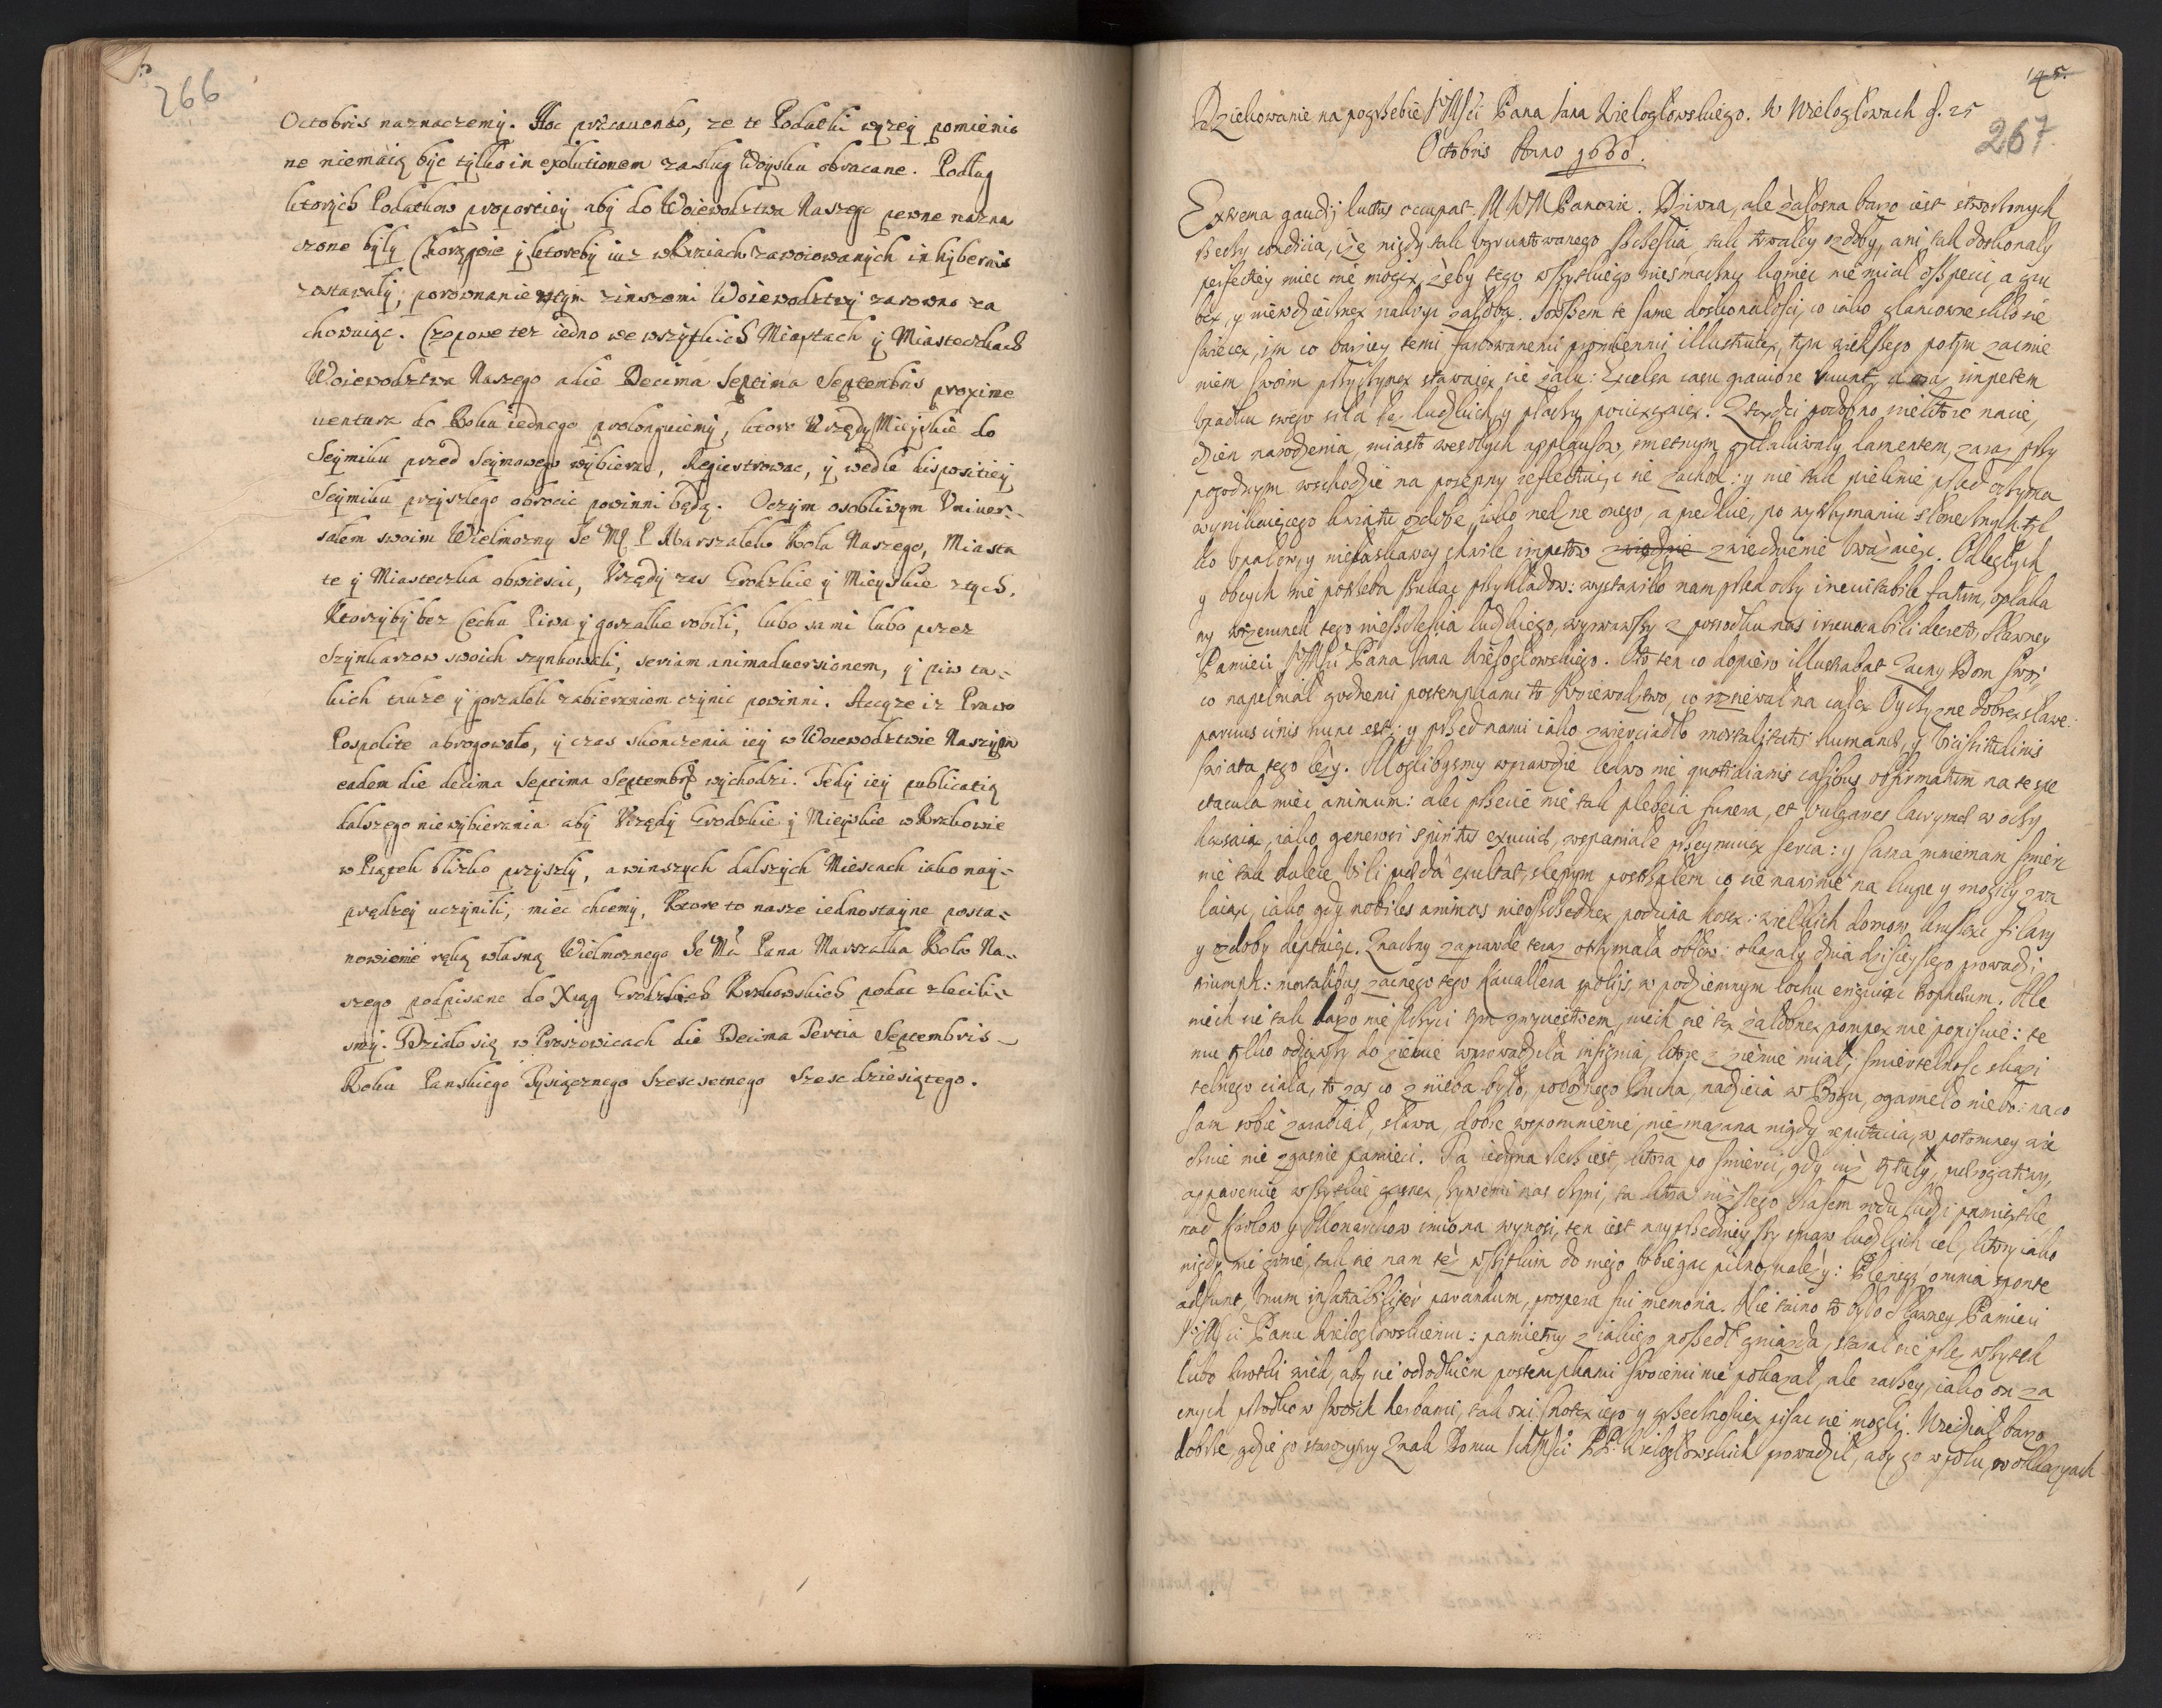 266
Octobris naznaczemy. Hoc praecauendo, ze te Podatki wyzey pomienio
ne niemaią byc tylko in exolutionem zasług Woysku obracane. Podług
ktorych Podatkow proportiey aby do Woiewodztwa Naszego pewne nazna
czone były Chorągwie y ktoreby iuz w Kraiach zawoiowanych in hybernis
zostawały, porownanie wtym zinszemi Woiewodztwy zarowno za
chowuiąc. Czopowe tez iedno we wszytkich Miastach y Miasteczkach
Woiewodztwa Naszego a die Decima Septima Septembris proxime
venturae do Roku iednego prolonguiemy, ktore Vrzędy Mieyskie do
Seymiku przed Seymowego wybierac, Regiestrowac, y wedle dispositiey
Seymiku przyszłego obrocic powinni będą. Oczym osobliwym Vniuer-
sałem swoim Wielmozny Je Mć P Marszałek Koła Naszego, Miasta
te y Miasteczka obwiesci, Vrzędy zas Grodzkie y Mieyskie z tych,
Ktorzyby bez Cechu Piwa y gorzałke robili, lubo sami lubo przez
Szynkarzow swoich szynkowali, seriam animaduersionem, y piw ta-
kich takze y gorzałek zabieraniem czynic powinni. Akcyze iz Prawo
Pospolite abrogowało, y czas skonczenia iey w Woiewodztwie Naszym
eadem die decima Septima Septembr wychodzi. Tedy iey publicatią
dalszego niewybierania aby Vrzędy Grodzkie y Mieyskie w Krakowie
w Piątek blizko przyszły, a winszych dalszych Miescach iako nay-
prędzey uczynili, miec chcemy, Ktore to nasze iednostayne posta-
nowienie ręką własną Wielmoznego Je Mci Pana Marszałka Koła Na-
szego podpisane do Xiąg Grodzkich Krakowskich podac zlecili-
smy. Działo się w Proszowicach die Decima Tertia Septembris
Roku Panskiego Tysiącznego Szescsetnego Szescdziesiątego.
145.
267
Dziękowanie na pogrzebie JMści Pana Jana Wielogłowskiego. W Wielogłowach d. 25
Octobris Anno 1660.
Extrema gaudij luctus occupat. M W M Panowie. Dziwna, ale załosna barzo iest stworzonych
rzeczy conditia, że nigdy tak vgruntowanego szczęścia tak trwałey ozdoby, ani tak doskonały
perfectiey miec nie mogą, żeby tego wszystkiego niesmaczny koniec nie miał oszpecic, a gru
bą, y niewdzięczną nakryc załobą. I owszem te same doskonałości, co iako glancowne szkło się
świecą, im co barziey temi farbowanemi promieniami illustruią, tym większego potym zacmie
niem swoim przyczyną stawaią się żalu: Excelsa casu grauiore ruunt, a zaraz impetem
vpadku swego siła łez ludzkich, y płaczu pociągaią. Ztąd podobno niektore nacie,
dzien narodzenia, miasto wesołych applausow, smetnym opłakiwały lamentem, zaraz przy
pogodnym wschodzie na posępny reflectuiąc się zachod: y nie tak pieknie przed oczyma
wynikaiącego kwiatu ozdobe, iako nedzne onego, a predkie, po wytrzymaniu słonecznych tyl
ko vpałow, y niełaskawey chwile impetow zwiędnienie vwazaiąc. Odległych
y obcych nie potrzeba szukac przykładow: wystawiło nam przed oczy ineuitabile fatum, opłaka
ny wizerunek tego nieszczęścia ludzkiego, wyrwawszy z posrodku nas irreuocabili decreto, Sławney
Pamieci JMści Pana Jana Wielogłowskiego. Oto ten co dopiero illustrabat Zacny Dom swoj,
co napełniał godnemi postempkami to Woiewodztwo, co rozsiewał na całą Oyczyzne dobrą sławe:
paruus cinis nunc est; y przed nami iako zwierciadło mortalitatis humanae, y vicissitudinis
świata tego leży. Moglibysmy wprawdzie ledwo nie quotidianis casibus obfirmatum na te spe
ctacula miec animum: alec przecie nie tak plebeia funera, et vulgares lacrymae w oczy
kasaią, iako generosi spiritus exuuiae, wspaniałe przeymuią serca: y sama mniemam smierc
nie tak dalece exultat, slepym postrzałem co się nawinie na kupe y mogiły zwa
laiąc, iako gdy nobiles animas nieoszczedną podcina kosą: wielkich domow, kruszac filary
y ozdoby deptaiąc. Znaczny zaprawde teraz otrzymała obłow: okazały dnia dzisieyszego prowadzi
triumph: mortalibus zacnego tego Kauallera spolijs, w podziemnym lochu eriguiąc tropheum. Ale
niech się tak barzo nie szczyci tym zwyciestwem, niech się tą żałobną pompą nie popisuie: te
mu tylko odiąwszy do ziemie wprowadziła insignia, ktore z ziemie miał, smiertelnosc skazi
telnego ciała, to zas co z nieba było, poboznego Ducha, nadzieia w Bogu, ogarneło niebo: na co
sam sobie zarabiał, sława, dobre wspomnienie, niezmazana nigdy reputacia, w potomney wie
cznie nie zgasnie pamieci. Ta iedyna rzecz iest, ktora po smierci, gdy iuż tytuły, prerogatiuy,
apparencie wszystkie gasną, zywemi nas czyni, ta ktora niższego czasem rodu ludzi pamiątke
nad Krolow y Monarchow imiona wynosi, ten iest nayprzednieyszy spraw ludzkich cel, ktory iako
nigdy nie ginie, tak się nam też wszytkim do niego vbiegac pilno należy: Plerisque omnia sponte
adsunt, Vnum insatiabiliter parandum, prospera sui memoria. Nie taino to było Sławney Pamieci
JMści Panu Wielogłowskiemu: pamietny z iakiego poszedł gniazda, starał się przez wszytek
lubo krotki wiek, aby się odrodkiem postempkami swoiemi nie pokazał, ale raczey, iako on za
cnych przodkow swoich herbami, tak oni cnotą iego y grzecznoscią pisac się mogli. Wiedział barzo
dobrze, gdzie go starozytny Znak Domu IchMści PP. Wielogłowskich prowadził, aby go w polu, w okkazyach